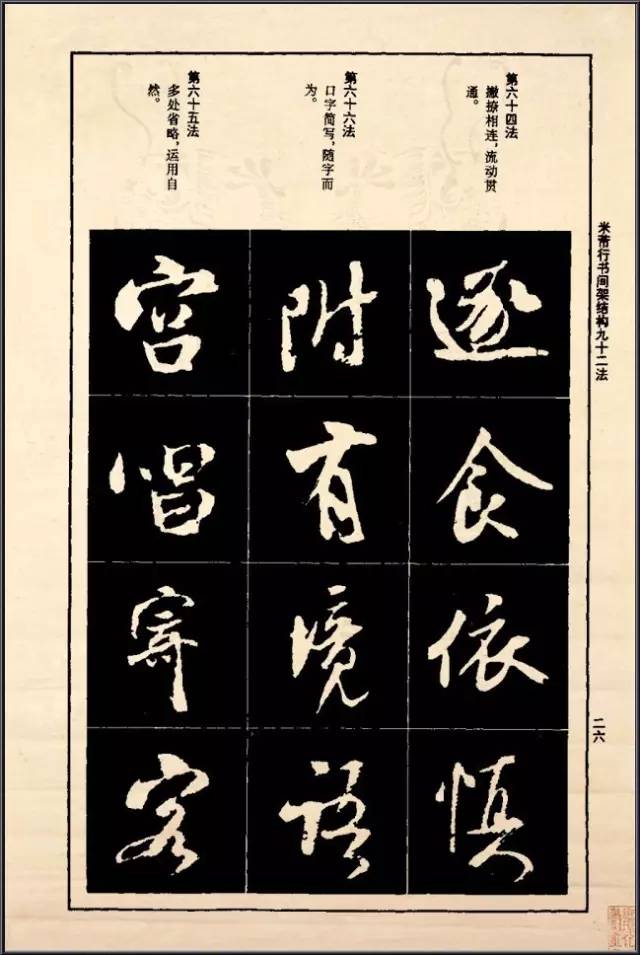 米芾行书间架结构九十二法
二六
第六十四法
撇撩相连，流动贯
通。
第六十六法
口字简写，随字而
为。
第六十五法
多处省略，运用自
然。
逐食依慎
附有境语
宫唱寄客